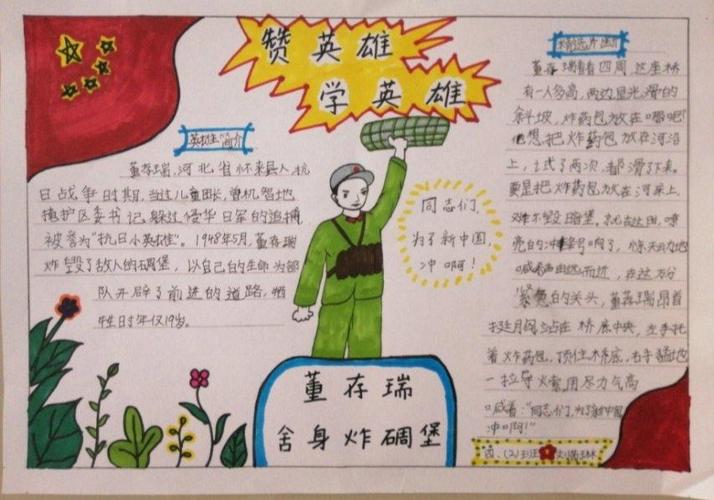 赞英雄
学英雄
英雄简介
董存瑞,河北省怀来县人,抗
日战争时期,当过儿童团长,曾机智地
掩护区委书记躲过侵华日军的追捕
被誉为“抗日小英雄”。1948年5月,董存瑞
炸毁了敌人的碉堡,以自己的生命为部
队开辟了前进的道路,牺
牲时年仅19岁。
同志们,
为了新中国,
冲啊!
董存瑞
舍身炸碉堡
精选片断
董存瑞看看四周,这座桥
有一人多高,两边是光滑的
斜坡,炸药包放在哪吧
他想把炸药包放在河沿
上,试了两次,都滑了下来。
要是把炸药包放在河床上,
难不毁暗堡。就在这时,嘹
亮的冲锋号响了,惊天动地
喊声由远而近,在这万分
紧急的关头,董存瑞昂首
挺胸站在桥底中央,左手托
着炸药包,顶住桥底,右手猛地
一拉导火索,用尽力气高
喊着:“同志们,为了新中国
冲啊!”
四、(2)班